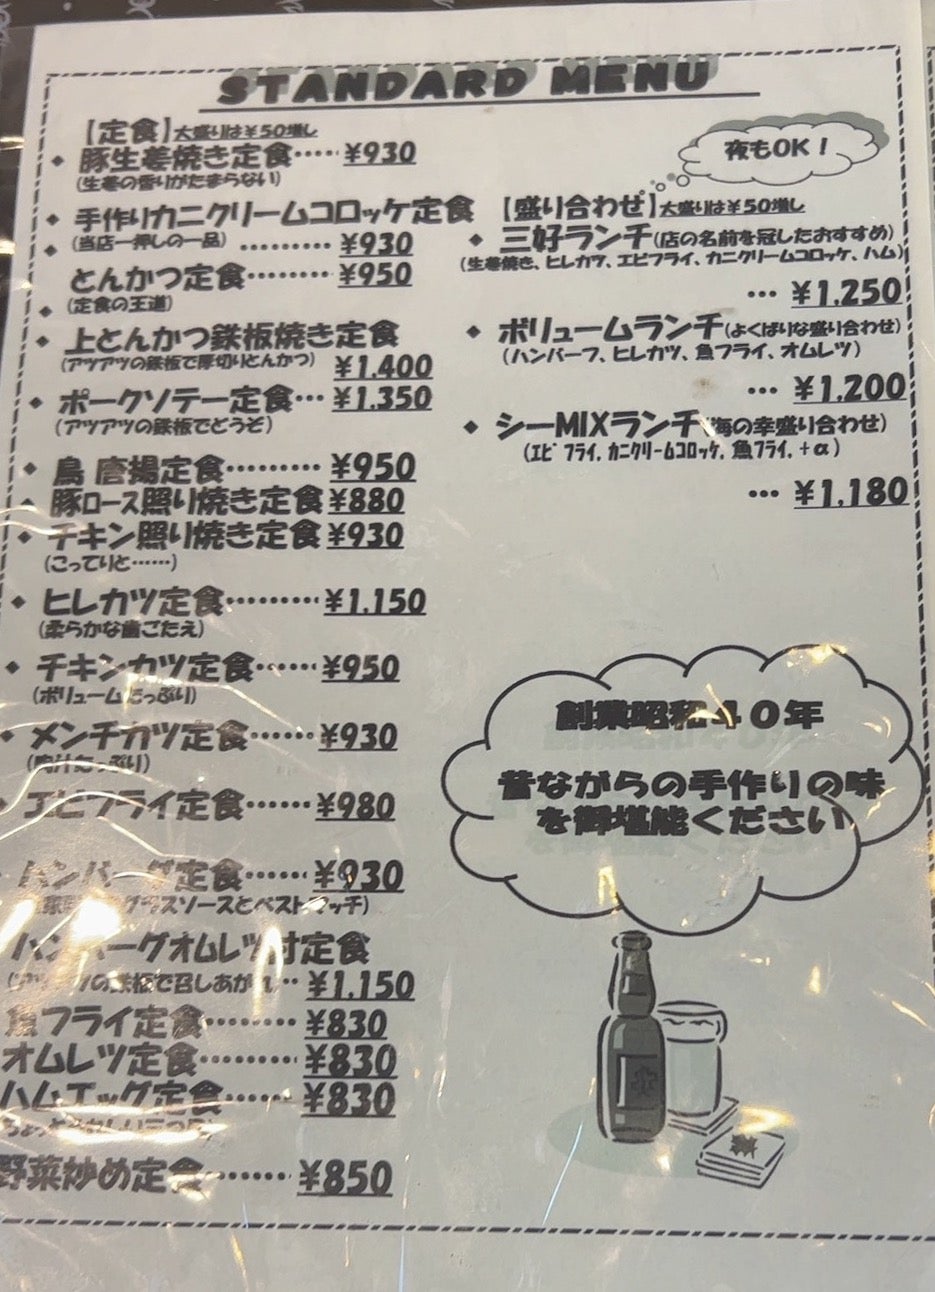 STANDARD MENU
【定食】大盛りは¥50増し
◆ 豚生姜焼き定食‥‥ ¥930
(生姜の香りがたまらない)
◆ 手作りカニクリームコロッケ定食
◆ (当店一押しの一品) ……… ¥930
とんかつ定食……… ¥950
◆ (定食の王道)
◆ 上とんかつ鉄板焼き定食
(アツアツの鉄板で厚切りとんかつ) ¥1,400
◆ ポークソテー定食… ¥1,350
(アツアツの鉄板でどうぞ)
◆ 鳥 唐揚定食……… ¥950
◆ 豚ロース照り焼き定食 ¥880
◆ チキン照り焼き定食 ¥930
(こってりと……)
◆ ヒレカツ定食……… ¥1,150
(柔らかな歯ごたえ)
◆ チキンカツ定食…… ¥950
(ボリュームたっぷり)
◆ メンチカツ定食…… ¥930
(肉汁たっぷり)
◆ エビフライ定食…… ¥980
ハンバーグ定食…… ¥930
ソースとベストマッチ)
ハンバーグオムレツ付定食
(アツアツの鉄板で召しあがれ… ¥1,150
魚フライ定食……… ¥830
オムレツ定食……… ¥830
ハムエッグ定食…… ¥830
野菜炒め定食…… ¥850
夜もOK!
【盛り合わせ】大盛りは¥50増し
◆ 三好ランチ(店の名前を冠したおすすめ)
(生姜焼き、ヒレカツ、エビフライ、カニクリームコロッケ、ハム)
… ¥1,250
◆ ボリュームランチ(よくばりな盛り合わせ)
(ハンバーフ、ヒレカツ、魚フライ、オムレツ)
… ¥1,200
◆ シーMIXランチ(海の幸盛り合わせ)
(エビフライ,カニクリームコロッケ,魚フライ,+α)
… ¥1,180
創業昭和40年
昔ながらの手作りの味
を御堪能ください